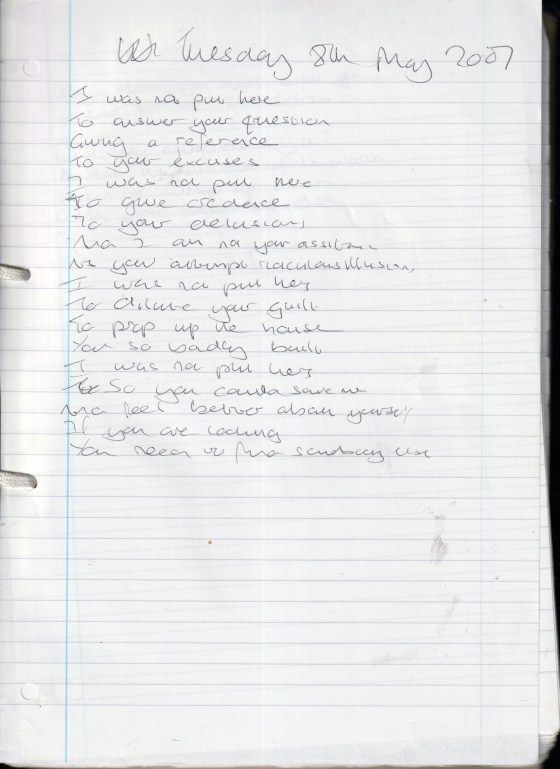 Tuesday 8th May 2007
I was not put here
To answer your question
Giving a reference
To your excuses
I was not put here
To give credence
To your delusions
No I am not your assistant
your illusions
I was not put here
To dilute your guilt
To prop up the house
You so badly built
I was not put here
So you could save me
And feel better about yourself
If you are looking
You need to find somebody else